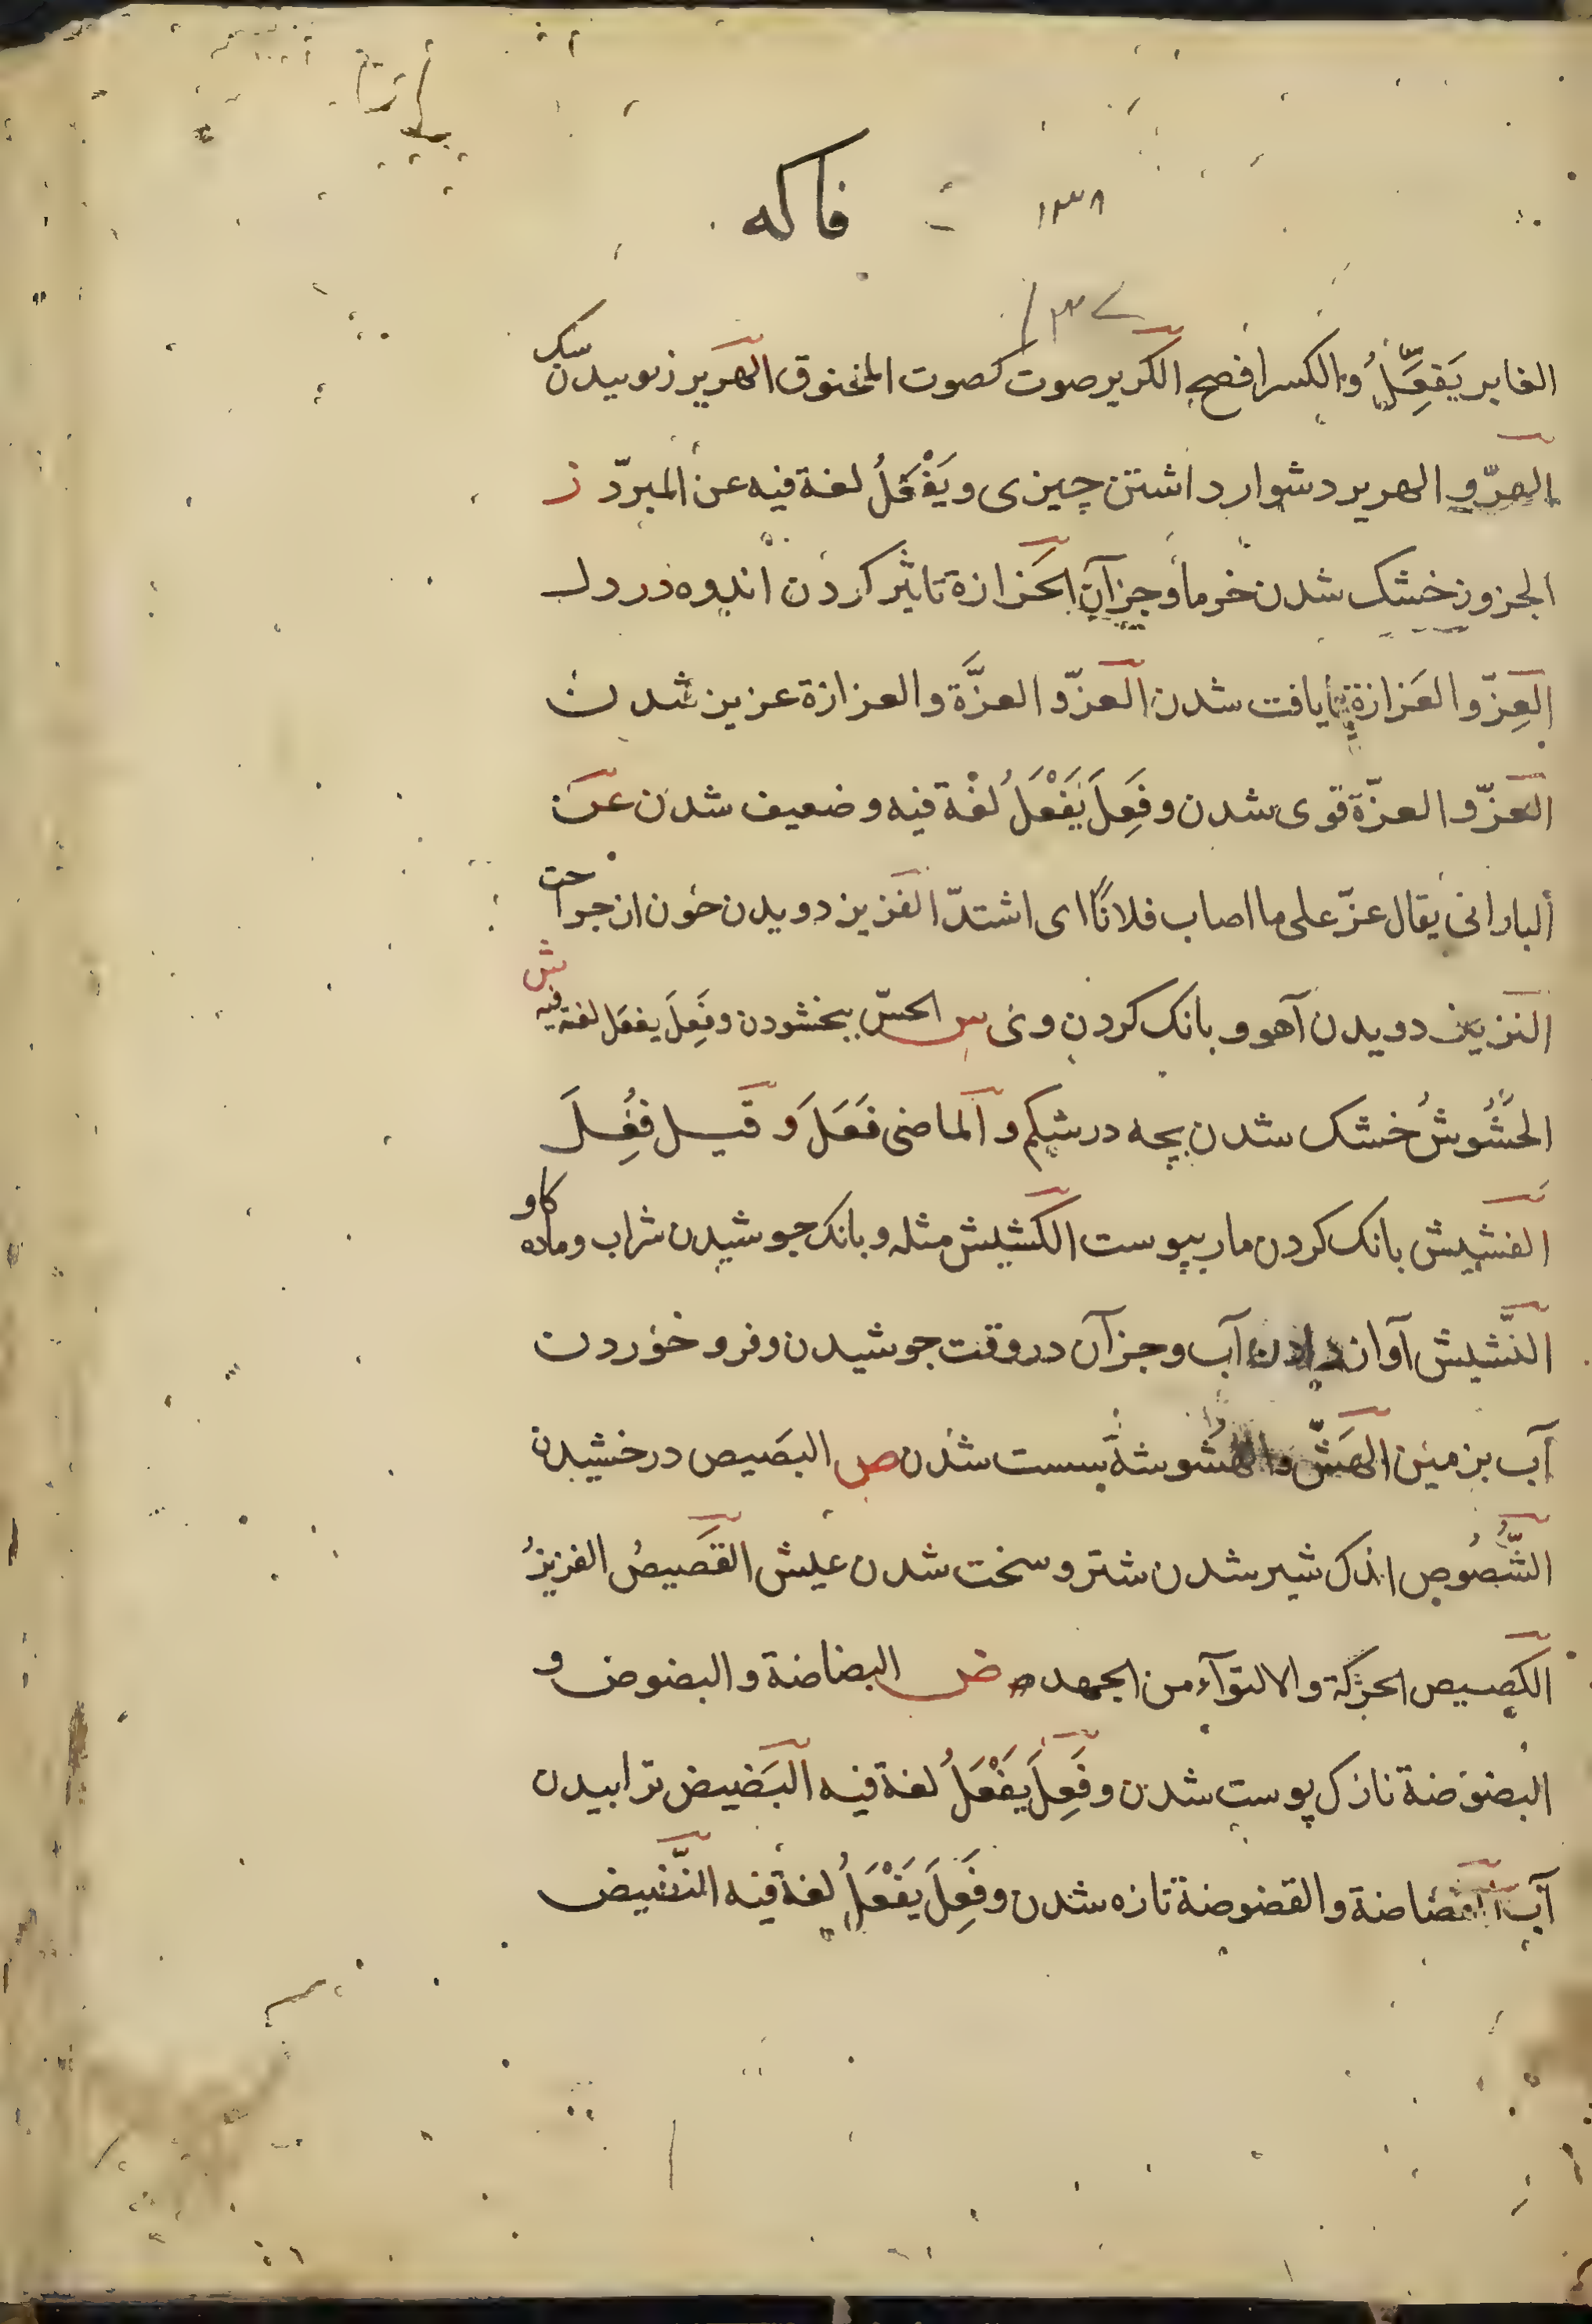 فاكه
١٣٨
١٣٧
الغابر يَفعَِلُ والكسر افصح الكرير صوت كصوت المخنوق الهَرير زنوييدن سگ
الهرّ و الهرير دشوار داشتن چيزى و يَفْعَلُ لغة فيه عن المبرّد ز
الجزوز خشك شدن خرما و جزآن الحَزازة تاثير كردن اندوه در دل
العِزّ والعَزازة نايافت شدن العزّ و العزَّة والعزازة عزيز شدن
العزّ و العزّة قوى شدن وفَعِلَ يَفْعَلُ لغْة فيه وضعيف شدن عن
ألبارانى يقال عزّ على ما اصاب فلانًا اى اشتدّ الفزيز دويدن خون از جراحت
النزيز دويدن آهو و بانك كردن وى س الحسّ ببخشودن وفَعِلَ يفعَل لغة فيه ش
الحُشُوشُ خشك شدن بچه در شكم و الماضى فَعَلَ و قيل فُعِلَ
الفشيش بانك كردن مار بپوست الكشيش مثله و بانك جوشيدن شراب وماده كاو
النَّشيش آواز دادن آب و جزآن در وقت جوشيدن وفرو خوردن
آب بزمين الهَشّ والهُشوشة سست شدن ص البصَيص درخشيدن
الشُّصُوص اندك شير شدن شتر و سخت شدن عيش القَصيصُ الفزيزُ
الكَصيص الحركة والالتوآء من الجهد ض البضاضة والبضوض و
البضوضة نازك پوست شدن وفَعِلَ يَفْعَلُ لغة فيه البَضيض ترابيدن
آب الغضاضة والغضوضة تازه شدن وفَعِلَ يَفْعَلُ لغة فيه النَّضيض